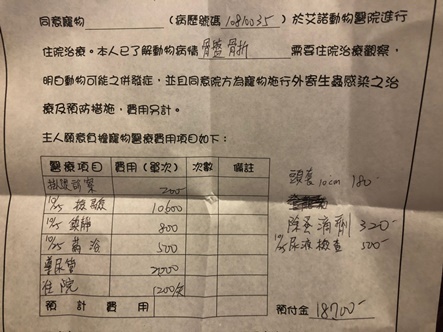 同意寵物 (病歷號碼 10810035 ) 於艾諾動物醫院進行
住院治療。本人已了解動物病情 骨盆骨折 需要住院治療觀察,
明白動物可能之併發症,並且同意院方為寵物施行外寄生蟲感染之治
療及預防措施,費用另計。
主人願意負擔寵物醫療費用項目如下:
醫療項目 費用(單次) 次數 備註
掛號診察 200
10/25 檢驗 10600
10/25 鎮靜 800
10/25 藥浴 500
導尿管 2000
住院 1200/天
預計費用
頭套 10cm 180-
除蚤滴劑 320-
10/25 尿液檢查 500-
預付金 18700-